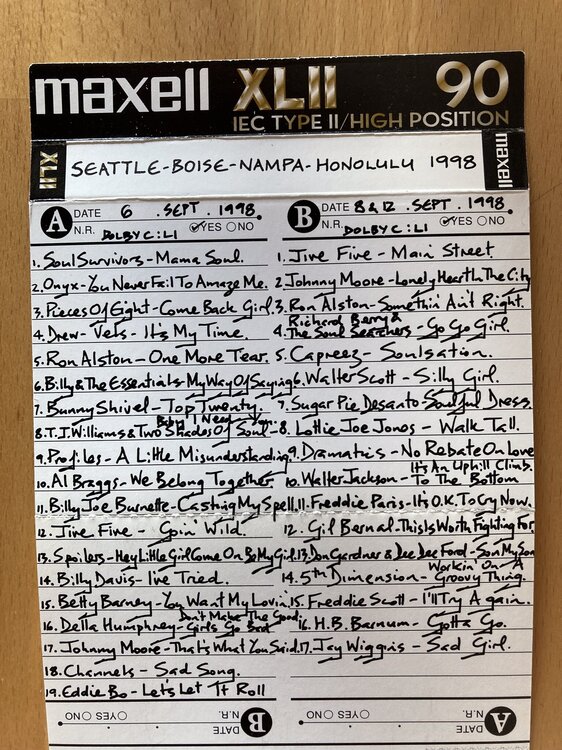 maxell XLII 90
IEC TYPE II/HIGH POSITION
XLII SEATTLE-BOISE-NAMPA-HONOLULU 1998 maxell
A DATE 6 . SEPT . 1998
N.R. YES NO
DOLBY C : LI
1. Soul Survivors - Mama Soul.
2. Onyx - You Never Fail To Amaze Me.
3. Pieces Of Eight - Come Back Girl
4. Drew-Vels - It's My Time.
5. Ron Alston - One More Tear.
6. Billy & The Essentials - My Way Of Saying
7. Bunny Shivel - Top Twenty
8. T.J. Williams & Two Shades Of Soul - Baby I Need You
9. Profiles - A Little Misunderstanding
10. Al Braggs - We Belong Together
11. Billy Joe Burnette - Casting My Spell
12. Jive Five - Goin' Wild.
13. Spoilers - Hey Little Girl Come On Be My Girl
14. Billy Davis - I've Tried.
15. Betty Barney - You Want My Lovin'
16. Della Humphrey - Don't Make The Good
Girls Go Bad
17. Johnny Moore - That's What You Said.
18. Channels - Sad Song.
19. Eddie Bo - Let's Let It Roll
B DATE N.R. YES NO
B DATE 8 & 12 . SEPT . 1998
N.R. YES NO
DOLBY C : LI
1. Jive Five - Main Street.
2. Johnny Moore - Lonely Heart In The City
3. Ron Alston - Somethin' Ain't Right.
4. Richard Berry &
The Soul Searchers - Go Go Girl.
5. Capreez - Soulsation.
6. Walter Scott - Silly Girl.
7. Sugar Pie Desanto Soulful Dress.
8. Lottie Joe Jones - Walk Tall.
9. Dramatics - No Rebate On Love
10. Walter Jackson - It's An Uphill Climb
To The Bottom
11. Freddie Paris - It's O.K. To Cry Now.
12. Gil Bernal - This Is Worth Fighting For
13. Don Gardner & Dee Dee Ford - Son My Son
14. 5th Dimension - Workin' On A
Groovy Thing.
15. Freddie Scott - I'll Try Again.
16. H.B. Barnum - Gotta Go.
17. Jay Wiggins - Sad Girl.
A DATE N.R. YES NO